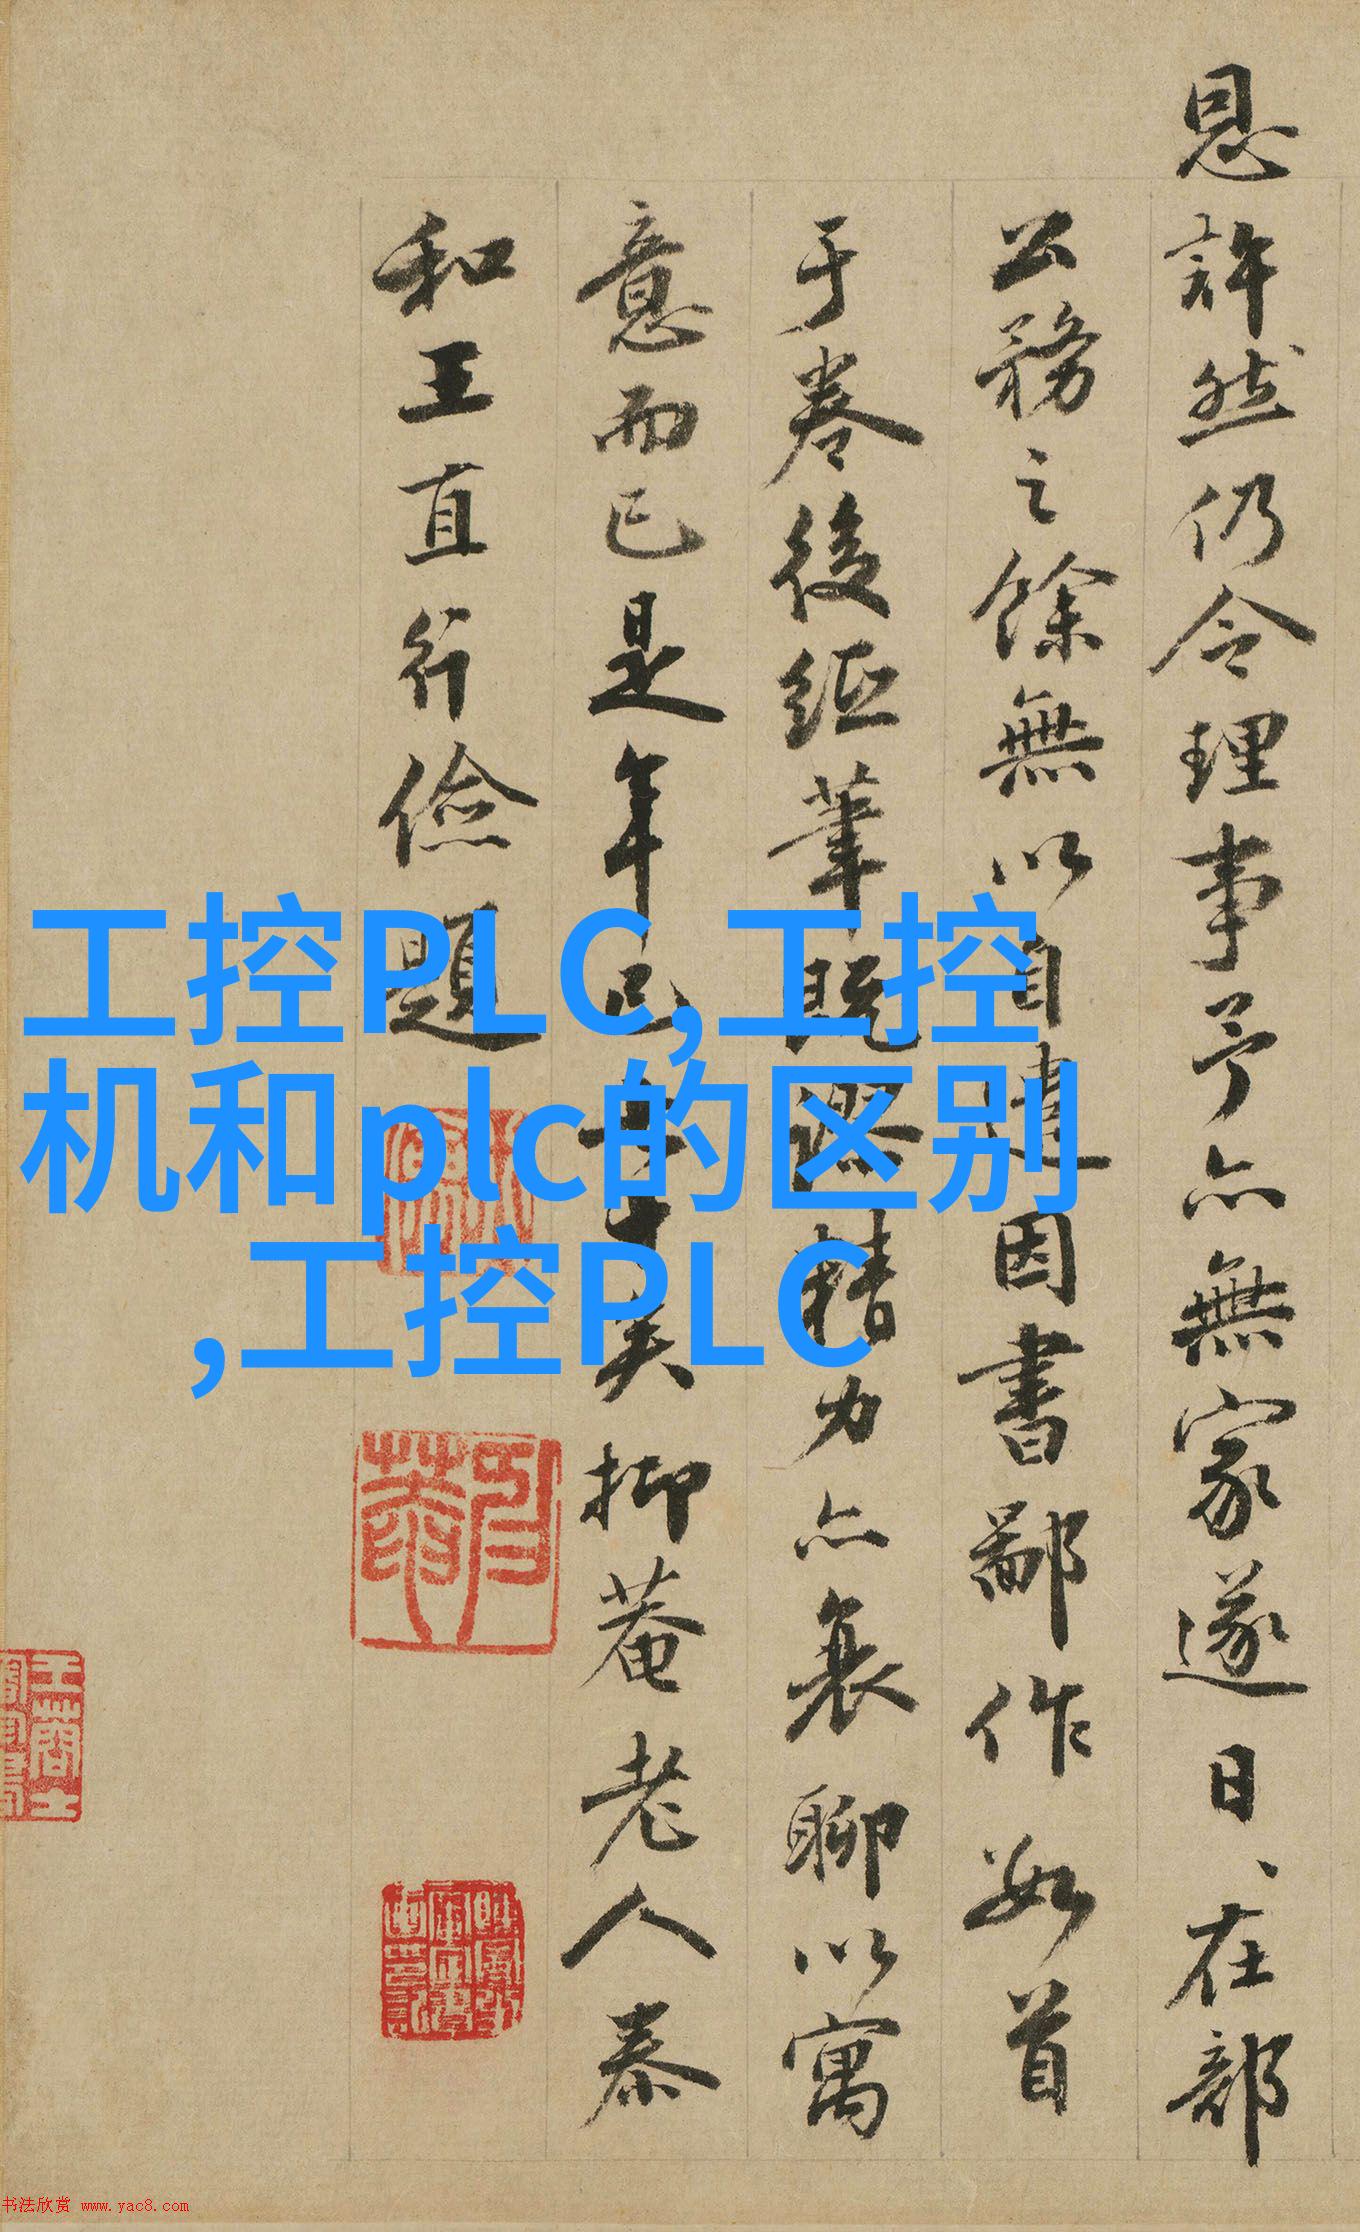 恩許然仍令理事予亦無家遂日、在部
公務之餘無以自遣因書鄙作數首
于卷後紙筆既精力亦衰聊以寓
意而已是年已七十矣抑菴老人泰
和王直行儉題
工控PLC,工控
机和plc的区别
,工控PLC
书法欣赏 www.yac8.com